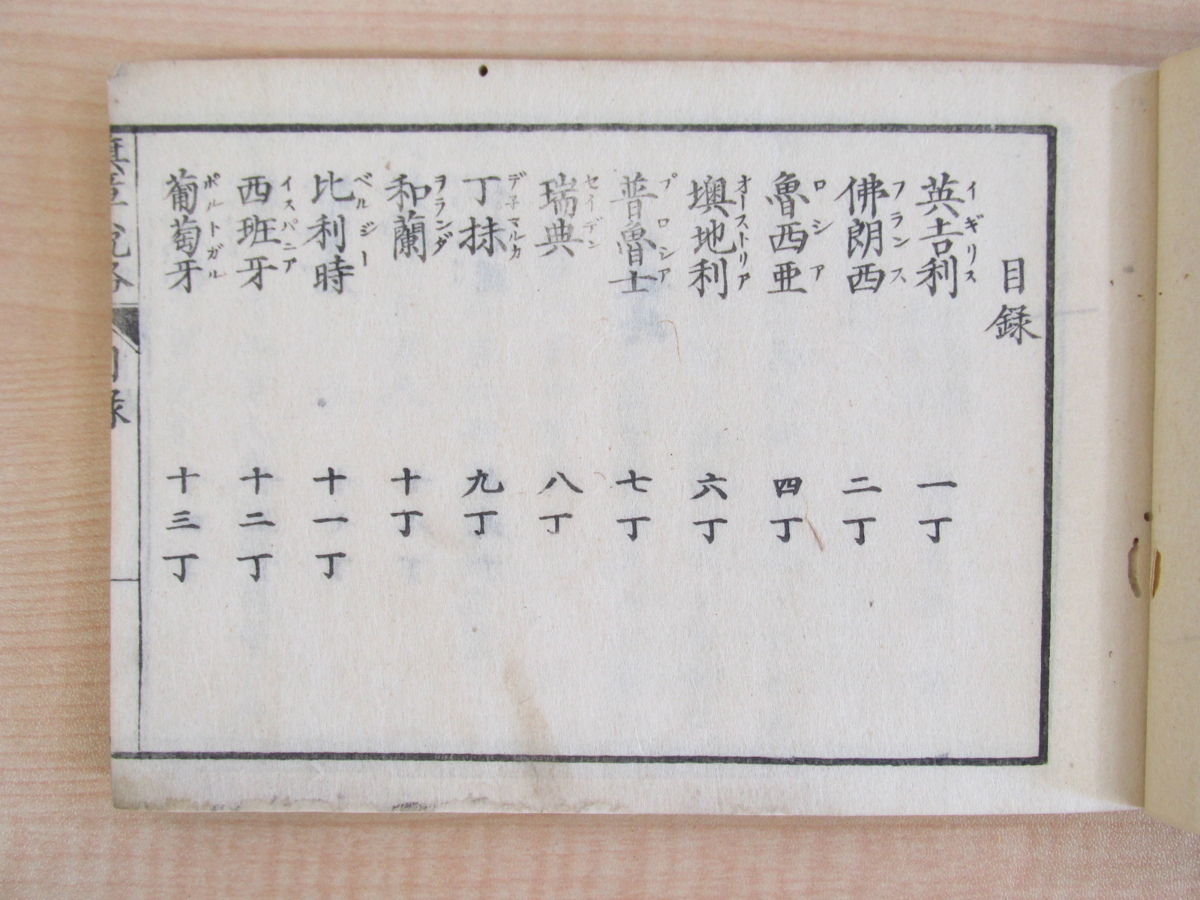 目録
英吉利 イギリス 一丁
佛朗西 フランス 二丁
魯西亜 ロシア 四丁
墺地利 オーストリア 六丁
普魯士 プロシア 七丁
瑞典 セイデン 八丁
丁抹 デ子マルカ 九丁
和蘭 ヲランダ 十丁
比利時 ベルジー 十一丁
西班牙 イスパニア 十二丁
葡萄牙 ポルトガル 十三丁
目録